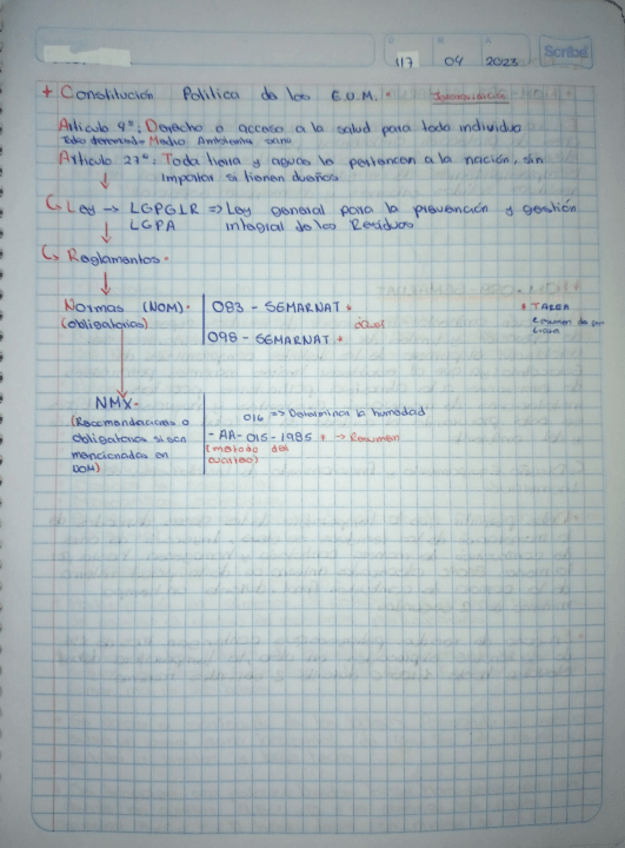 117 04 2023 Scribe
+ Constitución Política de los E.U.M. • Jerarquización
Artículo 4°: Derecho a acceso a la salud para todo individuo
Medio Ambiente sano
Artículo 27°: Toda tierra y aguas le pertencen a la nación, sin
importar si tienen dueños
Ley → LGPGIR => Ley general para la prevención y gestión
LGPA integral de los Residuos
Reglamentos •
Normas (NOM) • 083 - SEMARNAT * * TAREA
(obligatorias)
098 - SEMARNAT *
NMX •
016 => Determinar la humedad
(Recomendaciones o
obligatorias si son - AA - 015 - 1985 * → Resumen
mencionadas en (método del
NOM) cuarteo)